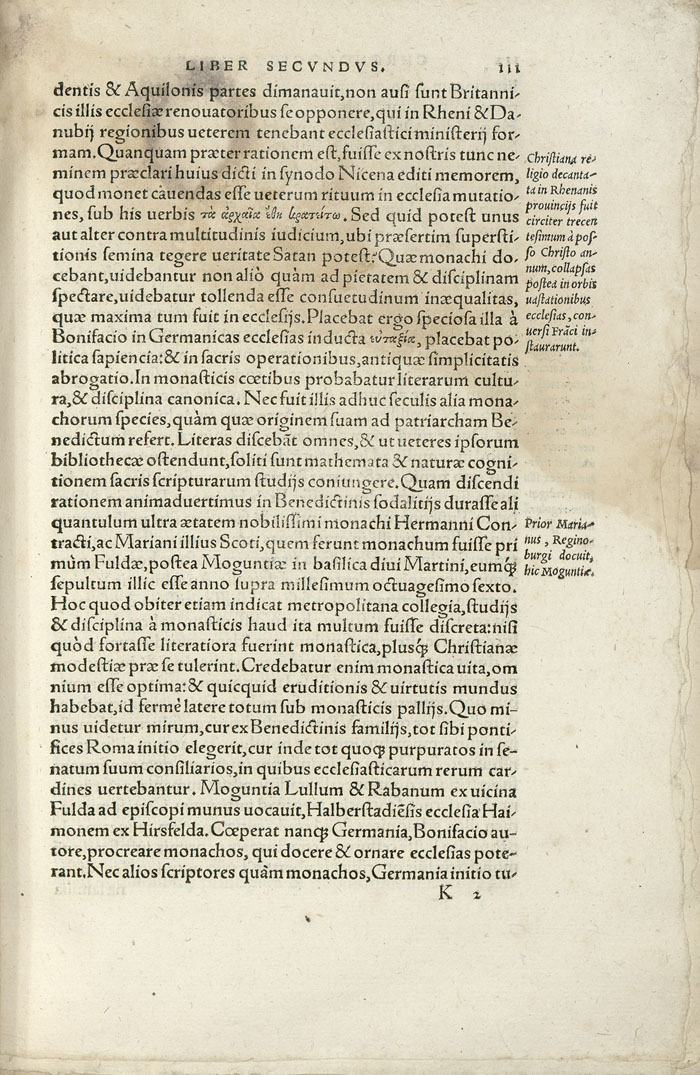 LIBER SECVNDVS. 111
dentis & Aquilonis partes dimanauit, non ausi sunt Britanni-
cis illis ecclesiæ renouatoribus se opponere, qui in Rheni & Da-
nubij regionibus ueterem tenebant ecclesiastici ministerij for-
mam. Quanquam præter rationem est, fuisse ex nostris tunc ne-
minem præclari huius dicti in synodo Nicena editi memorem,
quod monet cauendas esse ueterum rituum in ecclesia mutatio-
nes, sub his uerbis τὰ ἀρχαῖα ἔθη κρατείτω. Sed quid potest unus
aut alter contra multitudinis iudicium, ubi præsertim supersti-
tionis semina tegere ueritate Satan potest? Quæ monachi do-
cebant, uidebantur non aliò quàm ad pietatem & disciplinam
spectare, uidebatur tollenda esse consuetudinum inæqualitas,
quæ maxima tum fuit in ecclesijs. Placebat ergo speciosa illa à
Bonifacio in Germanicas ecclesias inducta εὐταξία, placebat po-
litica sapiencia: & in sacris operationibus, antiquæ simplicitatis
abrogatio. In monasticis cœtibus probabatur literarum cultu-
ra, & disciplina canonica. Nec fuit illis adhuc seculis alia mona-
chorum species, quàm quæ originem suam ad patriarcham Be-
nedictum refert. Literas discebãt omnes, & ut ueteres ipsorum
bibliothecæ ostendunt, soliti sunt mathemata & naturæ cogni-
tionem sacris scripturarum studijs coniungere. Quam discendi
rationem animaduertimus in Benedictinis sodalitijs durasse ali
quantulum ultra ætatem nobilissimi monachi Hermanni Con-
tracti, ac Mariani illius Scoti, quem ferunt monachum fuisse pri
mùm Fuldæ, postea Moguntiæ in basilica diui Martini, eumq́;
sepultum illic esse anno supra millesimum octuagesimo sexto.
Hoc quod obiter etiam indicat metropolitana collegia, studijs
& disciplina à monasticis haud ita multum fuisse discreta: nisi
quòd fortasse literatiora fuerint monastica, plusq́; Christianæ
modestiæ præ se tulerint. Credebatur enim monastica uita, om
nium esse optima: & quicquid eruditionis & uirtutis mundus
habebat, id fermè latere totum sub monasticis pallijs. Quo mi-
nus uidetur mirum, cur ex Benedictinis familijs, tot sibi ponti-
fices Roma initio elegerit, cur inde tot quoq; purpuratos in se-
natum suum consiliarios, in quibus ecclesiasticarum rerum car-
dines uertebantur. Moguntia Lullum & Rabanum ex uicina
Fulda ad episcopi munus uocauit, Halberstadiẽsis ecclesia Hai-
monem ex Hirsfelda. Cœperat nanq; Germania, Bonifacio au-
tore, procreare monachos, qui docere & ornare ecclesias pote-
rant. Nec alios scriptores quàm monachos, Germania initio tu-
K 2
Christiana re-
ligio decanta-
ta in Rhenanis
prouincijs fuit
circiter trecen
tesimum à pos-
so Christo an-
num, collapsas
postea in orbis
uastationibus
ecclesias, con-
uersi Frãci in-
staurarunt.
Prior Maria-
nus, Regino-
burgi docuit,
hic Moguntiæ.